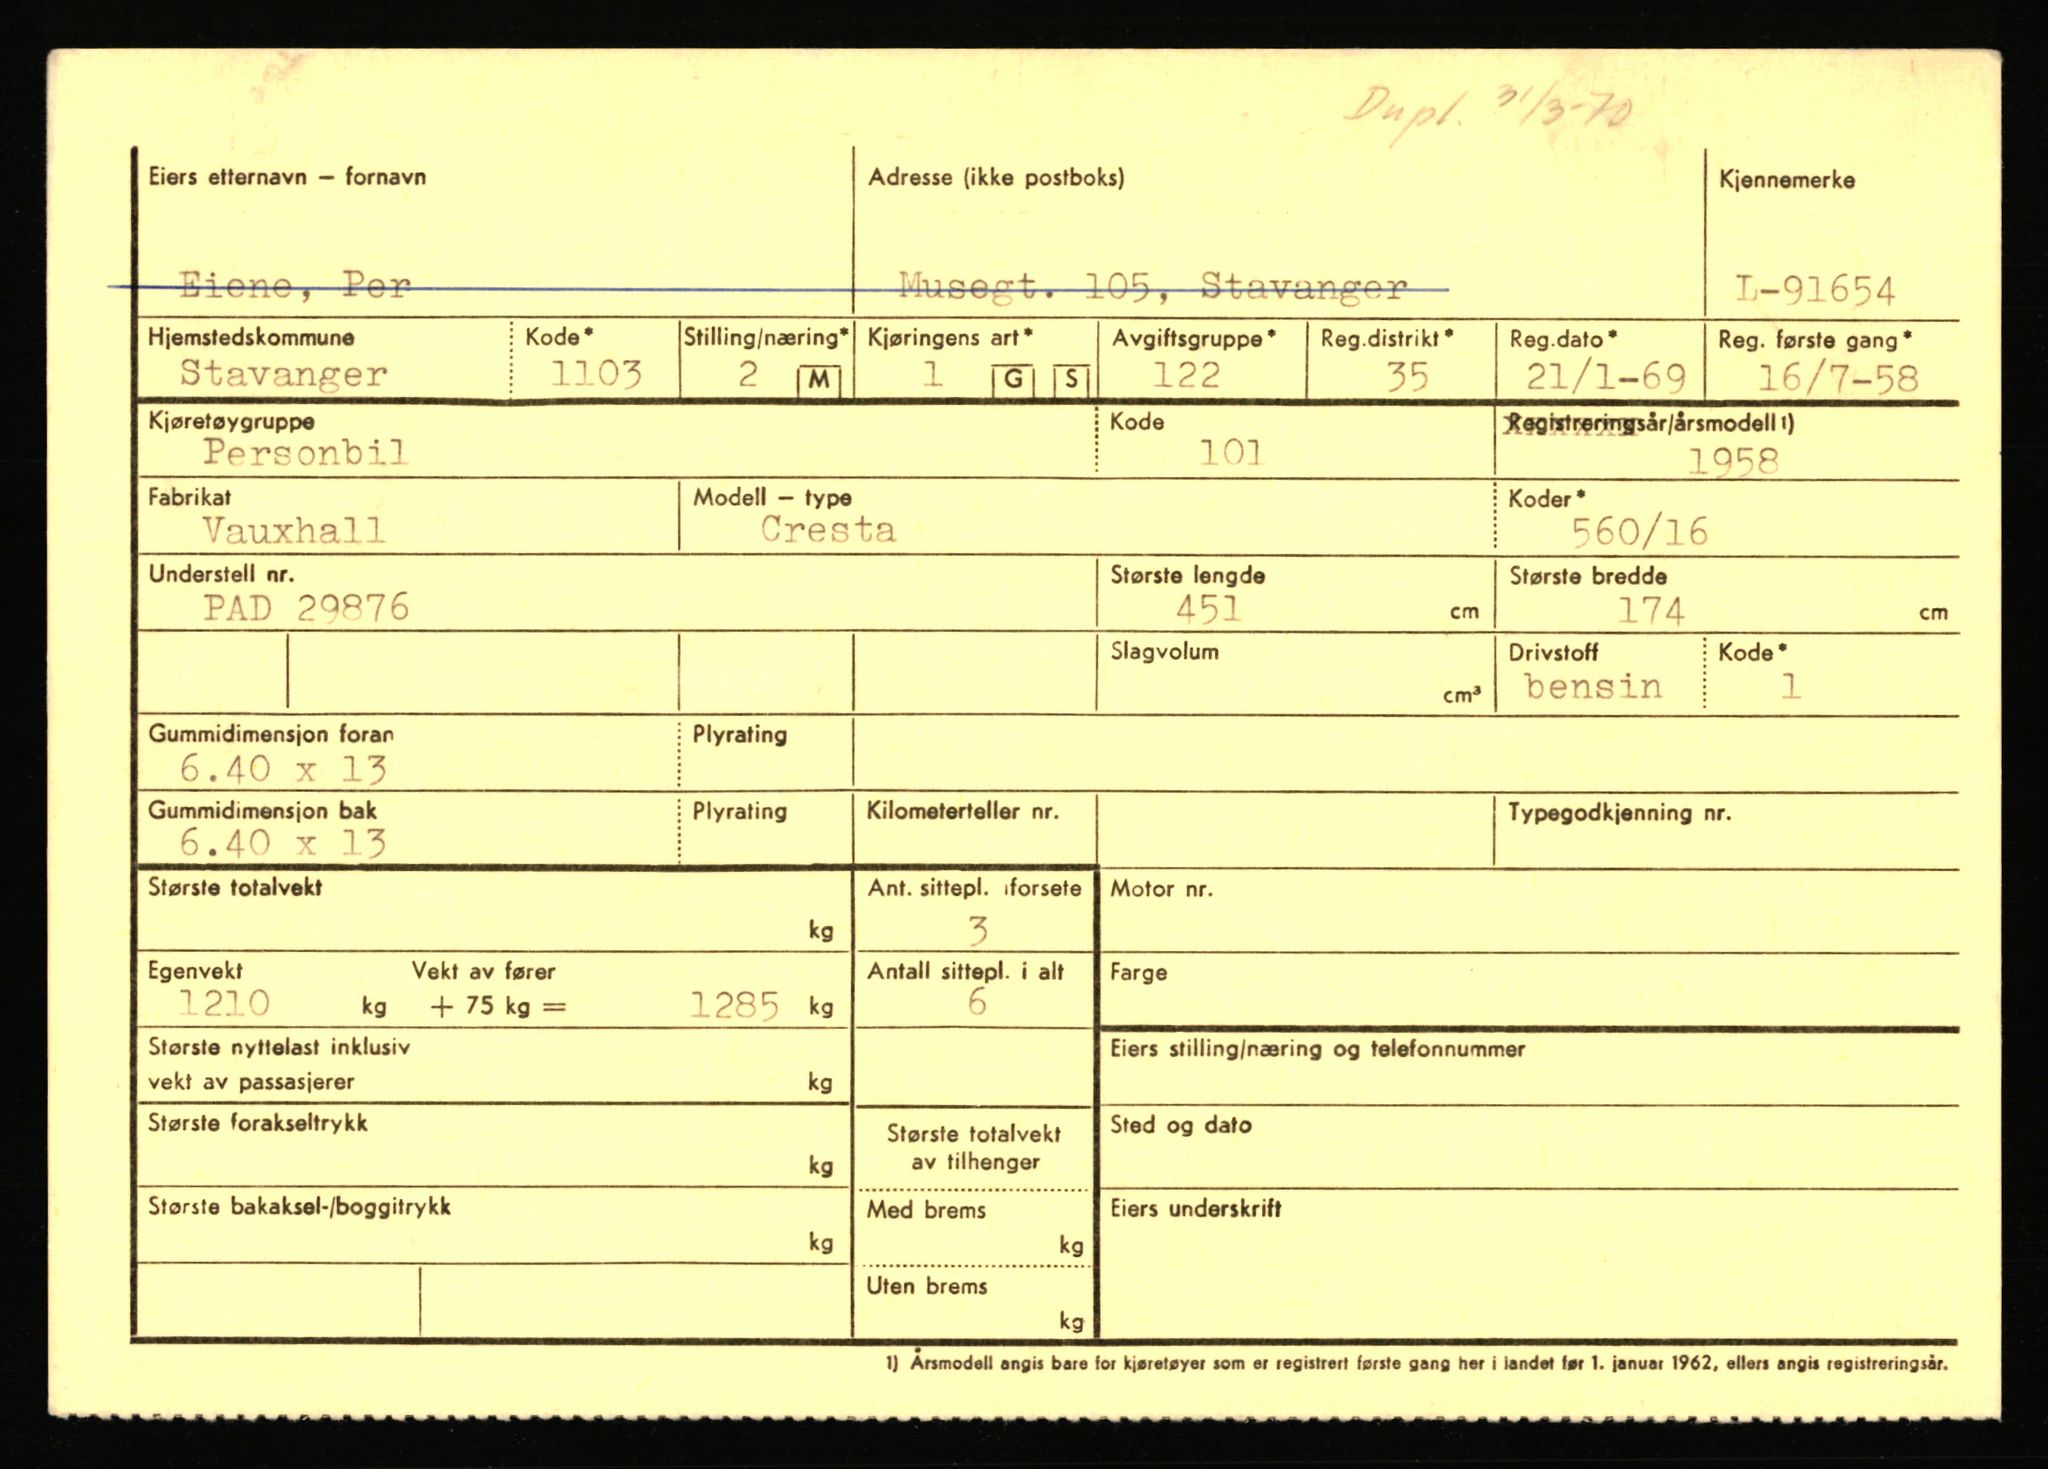 Dupl. 31/3-70
Eiers etternavn – fornavn Adresse (ikke postboks) Kjennemerke
Eiene, Per Musegt. 105, Stavanger L-91654
Hjemstedskommune Kode* Stilling/næring* Kjøringens art* Avgiftsgruppe* Reg.distrikt* Reg.dato* Reg. første gang*
Stavanger 1103 2 M 1 G S 122 35 21/1-69 16/7-58
Kjøretøygruppe Kode Registreringsår/årsmodell 1)
Personbil 101 1958
Fabrikat Modell – type Koder*
Vauxhall Cresta 560/16
Understell nr. Største lengde Største bredde
PAD 29876 451 cm 174 cm
Slagvolum Drivstoff Kode*
cm³ bensin 1
Gummidimensjon foran Plyrating
6.40 x 13
Gummidimensjon bak Plyrating Kilometerteller nr. Typegodkjenning nr.
6.40 x 13
Største totalvekt Ant. sittepl. i forsete Motor nr.
kg 3
Egenvekt Vekt av fører Antall sittepl. i alt Farge
1210 kg + 75 kg = 1285 kg 6
Største nyttelast inklusiv Eiers stilling/næring og telefonnummer
vekt av passasjerer kg
Største forakseltrykk Største totalvekt Sted og dato
kg av tilhenger
Største bakaksel-/boggitrykk Med brems Eiers underskrift
kg kg
Uten brems
kg
1) Årsmodell angis bare for kjøretøyer som er registrert første gang her i landet før 1. januar 1962, ellers angis registreringsår.